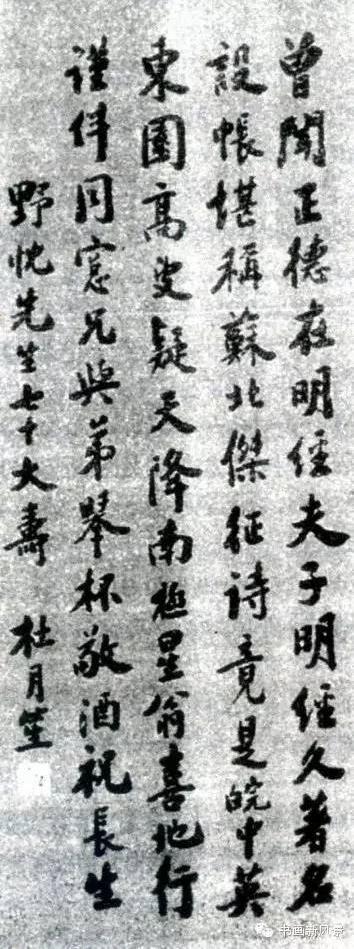 曾聞正德在明經夫子明經久著名
設帳堪稱蘇北傑征詩竟是皖中英
東園高叟疑天降南極星翁喜地行
謹伴同窓兄與弟舉杯敬酒祝長生
野忱先生七十大壽 杜月笙
书画新风景